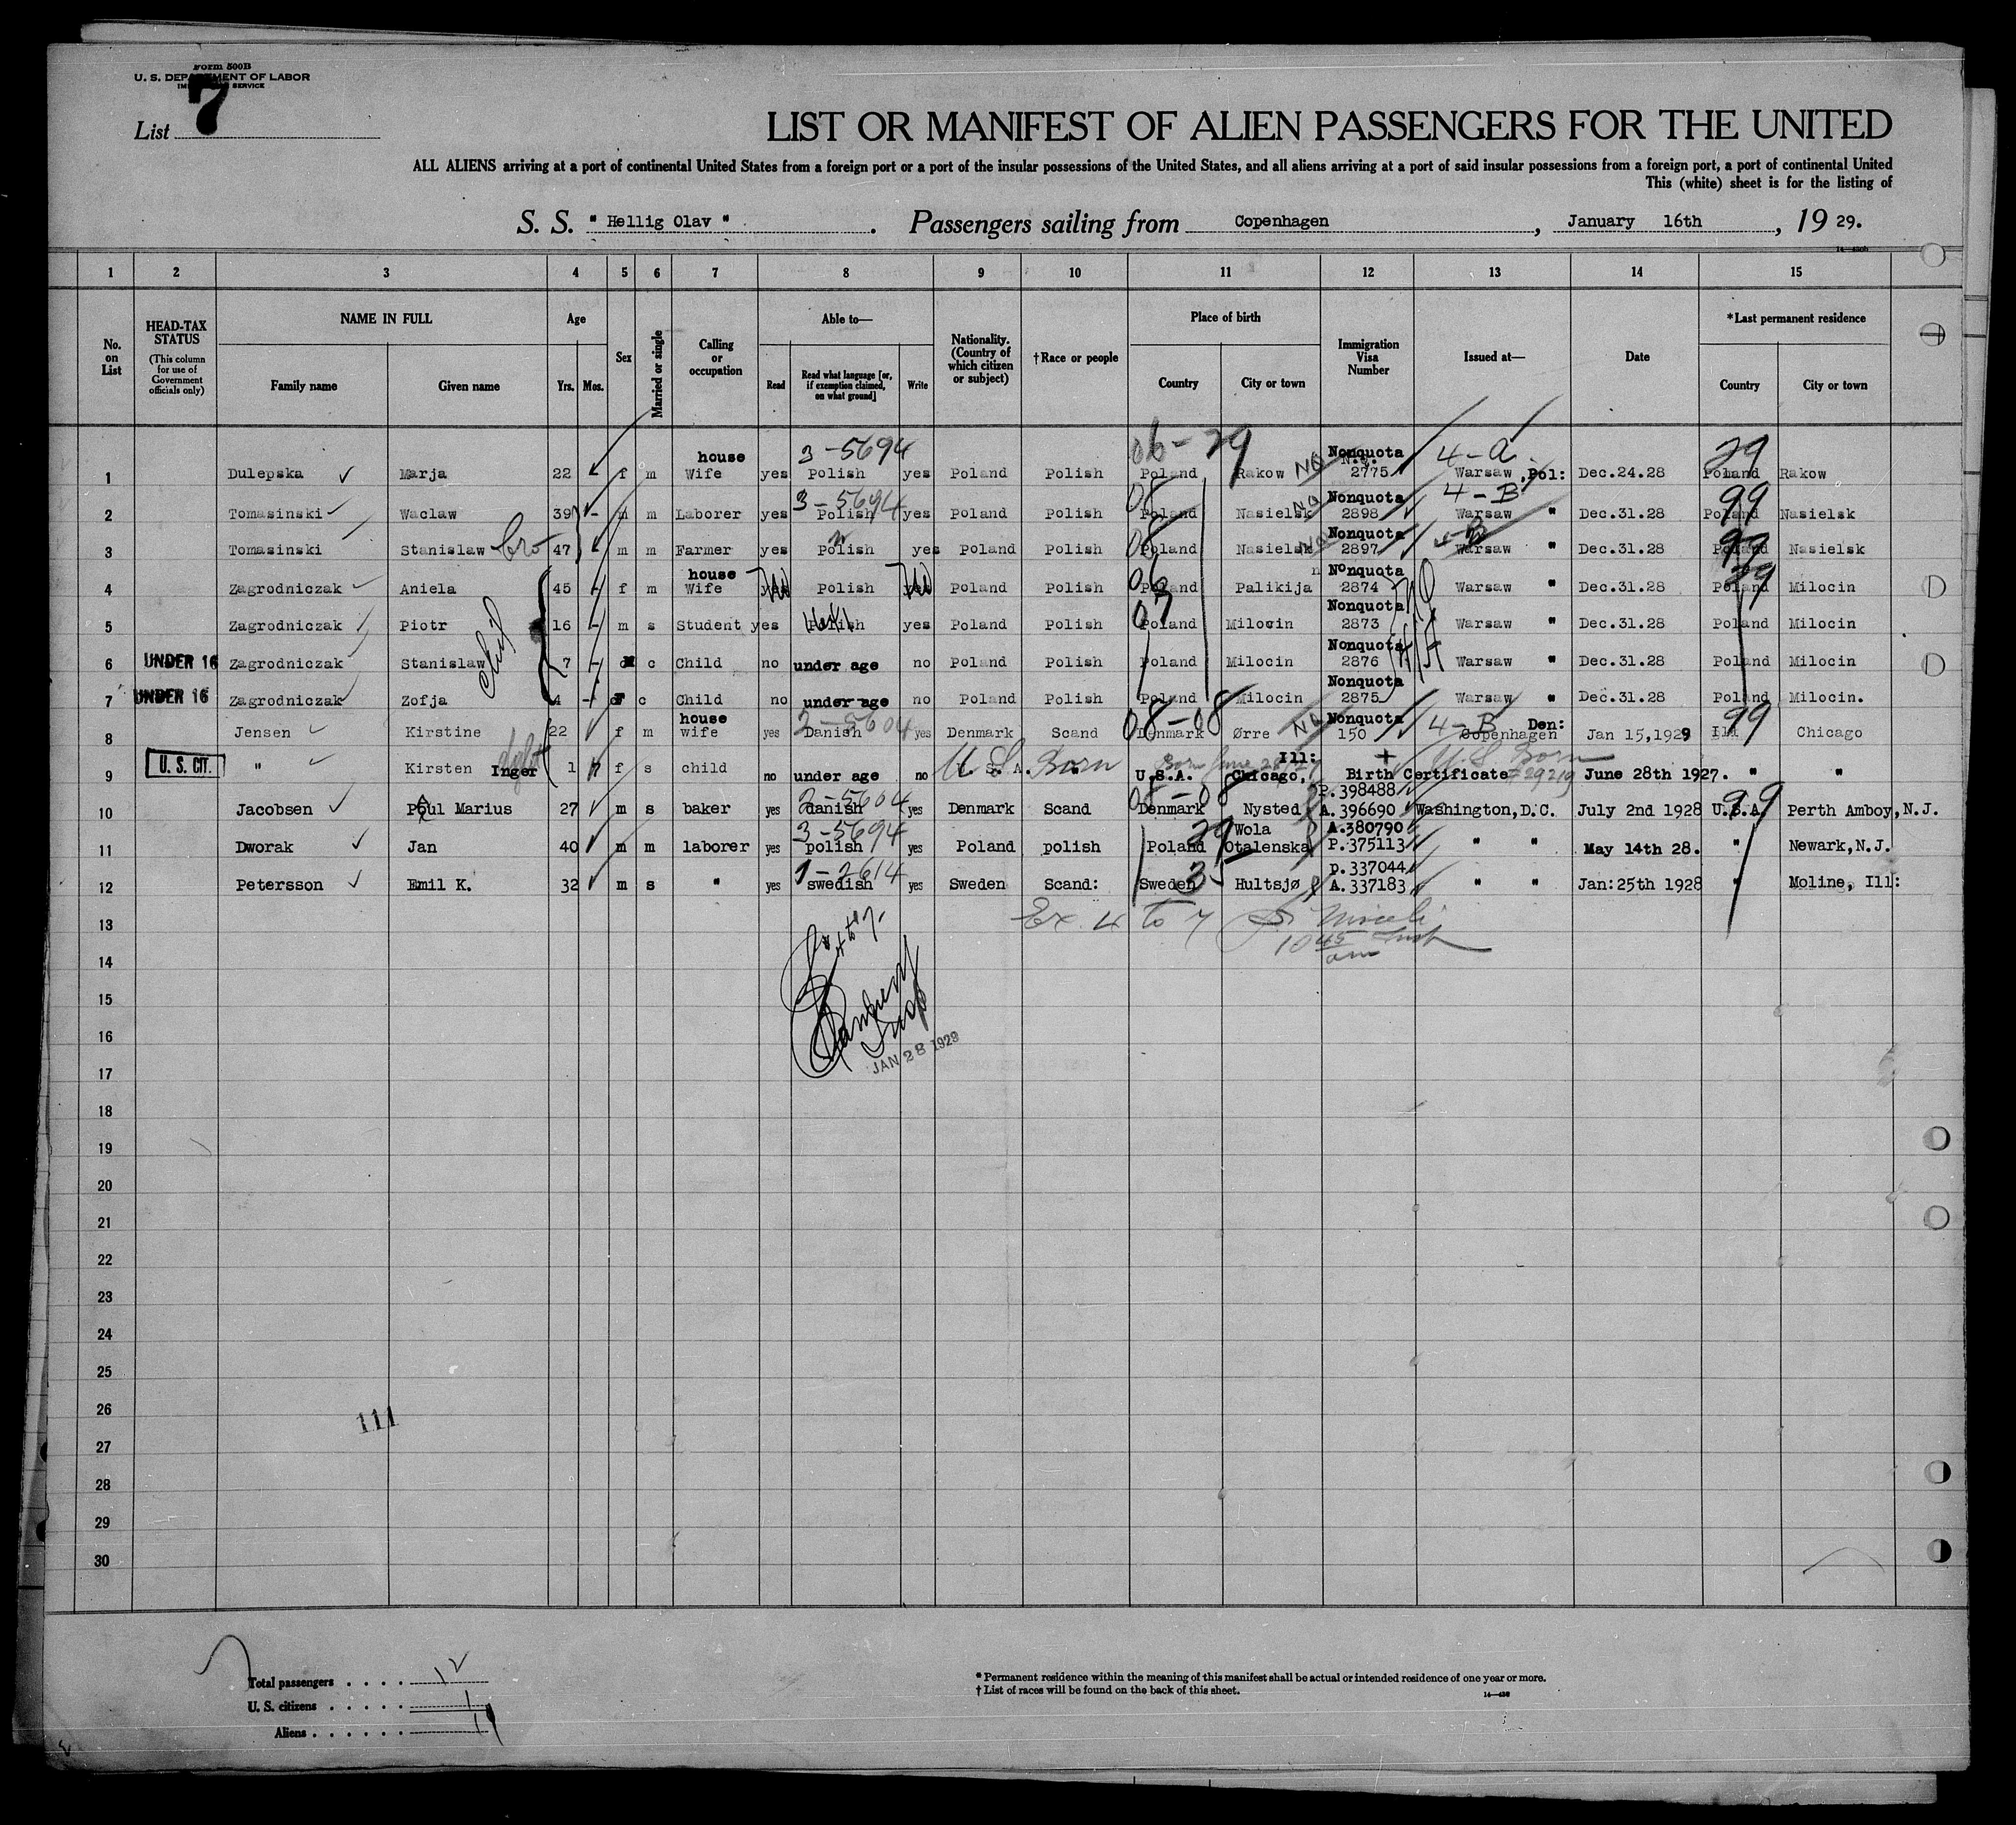 Form 500B
U. S. DEPARTMENT OF LABOR
IMMIGRATION SERVICE
List 7
LIST OR MANIFEST OF ALIEN PASSENGERS FOR THE UNITED
ALL ALIENS arriving at a port of continental United States from a foreign port or a port of the insular possessions of the United States, and all aliens arriving at a port of said insular possessions from a foreign port, a port of continental United
This (white) sheet is for the listing of
S. S. " Hellig Olav " . Passengers sailing from Copenhagen , January 16th , 19 29.
1 2 3 4 5 6 7 8 9 10 11 12 13 14 15
No. on List
HEAD-TAX STATUS (This column for use of Government officials only)
NAME IN FULL Family name Given name
Age Yrs. Mos.
Sex
Married or single
Calling or occupation
Able to— Read Read what language [or, if exemption claimed, on what ground] Write
Nationality. (Country of which citizen or subject)
†Race or people
Place of birth Country City or town
Immigration Visa Number
Issued at—
Date
*Last permanent residence Country City or town
3-5694 06-29 4-a 29
1 Dulepska Marja 22 f m house Wife yes Polish yes Poland Polish Poland Rakow NQ Nonquota N.Q. 2775 Warsaw, Pol: Dec.24.28 Poland Rakow
3-5694 08 4-B 99
2 Tomasinski Waclaw 39 m m Laborer yes Polish yes Poland Polish Poland Nasielsk NQ Nonquota 2898 Warsaw " Dec.31.28 Poland Nasielsk
08 4-B 99
3 Tomasinski Stanislaw bro 47 m m Farmer yes Polish yes Poland Polish Poland Nasielsk NQ Nonquota 2897 Warsaw " Dec.31.28 Poland Nasielsk
06 29
4 Zagrodniczak Aniela 45 f m house Wife yes no Polish yes no Poland Polish Poland Palikija Nonquota 2874 Warsaw " Dec.31.28 Poland Milocin
07
5 Zagrodniczak Piotr 16 m s Student yes Polish yes Poland Polish Poland Milocin Nonquota 2873 Warsaw " Dec.31.28 Poland Milocin
6 UNDER 16 Zagrodniczak Stanislaw 7 c Child no under age no Poland Polish Poland Milocin Nonquota 2876 Warsaw " Dec.31.28 Poland Milocin
7 UNDER 16 Zagrodniczak Zofja 4 F c Child no under age no Poland Polish Poland Milocin Nonquota 2875 Warsaw " Dec.31.28 Poland Milocin.
2-5604 08-08 4-B 99
8 Jensen Kirstine 22 f m house wife yes Danish yes Denmark Scand Denmark Ørre NQ Nonquota 150 Copenhagen Den: Jan 15,1929 Ill Chicago
9 U. S. CIT. " Kirsten Inger 1 7 f s child no under age no U.S.A. U.S. Born Born June 28/27 U.S.A. Chicago, Ill: Birth Certificate U.S. Born #29219 June 28th 1927. " "
2-5604 08-08 99
10 Jacobsen Poul Marius 27 m s baker yes danish yes Denmark Scand Denmark Nysted P.398488 A.396690 Washington,D.C. July 2nd 1928 U.S.A. Perth Amboy,N.J.
3-5694 29
11 Dworak Jan 40 m m laborer yes polish yes Poland polish Poland Wola Otalenska A.380790 P.375113 " " May 14th 28. " Newark,N.J.
1-2614 35
12 Petersson Emil K. 32 m s " yes swedish yes Sweden Scand: Sweden Hultsjø p.337044 A.337183 " " Jan:25th 1928 " Moline, Ill:
13
Ex. 4 to 7
10 45 am
14
15
16
JAN 28 1929
17
18
19
20
21
22
23
24
25
26
111
27
28
29
30
Total passengers . . . . 12
U. S. citizens . . . . . 1
Aliens . . . . . . 11
* Permanent residence within the meaning of this manifest shall be actual or intended residence of one year or more.
† List of races will be found on the back of this sheet.